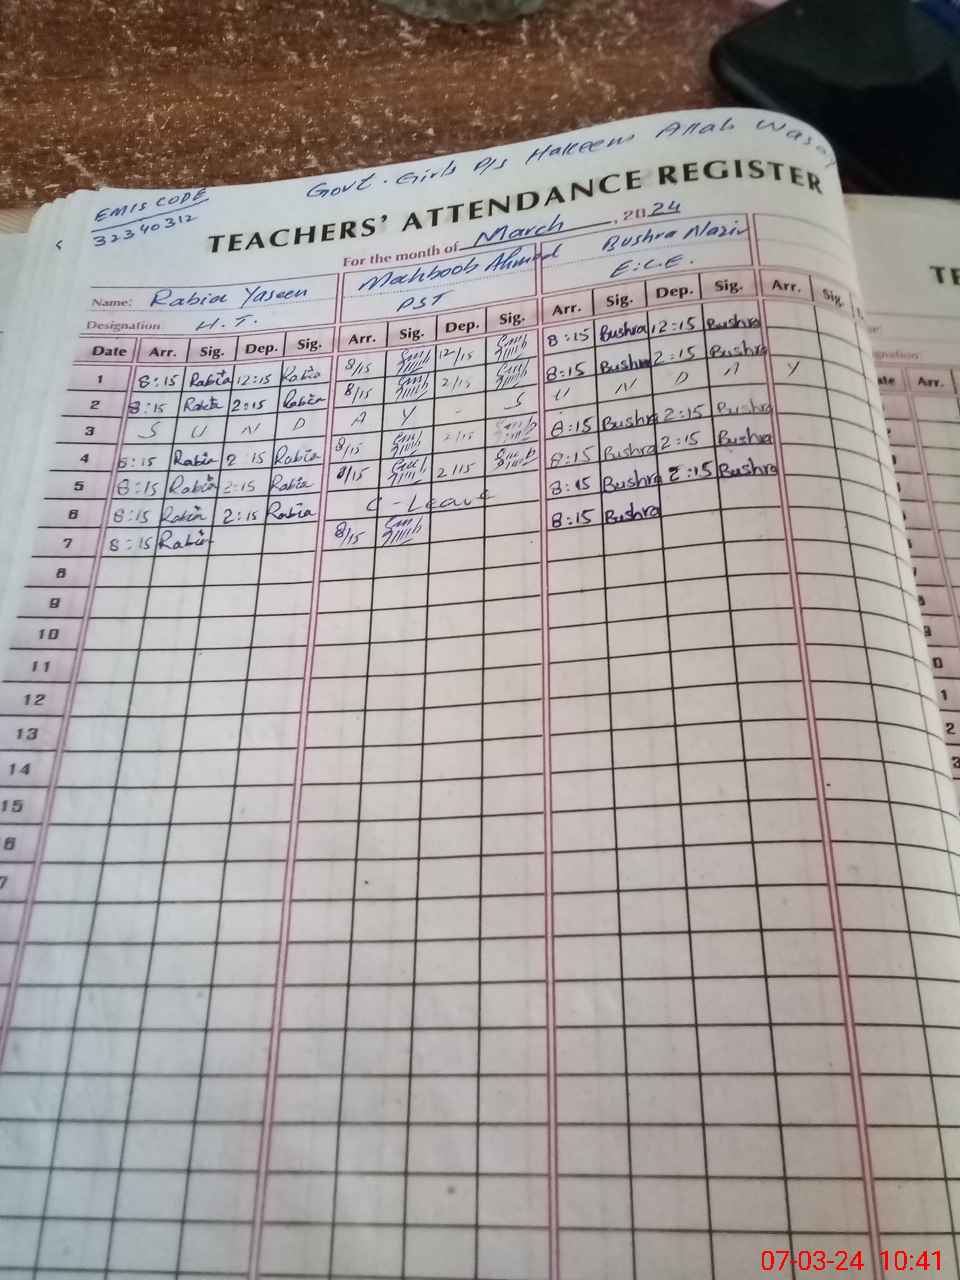 EMIS CODE
32340312
Govt. Girls P/S Hakeem Allah Wasa
TEACHERS' ATTENDANCE REGISTER
For the month of March, 2024
Name: Rabia Yaseen Mahboob Ahmad Bushra Nazir
Designation H.T. PST E.C.E.
Date Arr. Sig. Dep. Sig. Arr. Sig. Dep. Sig. Arr. Sig. Dep. Sig. Arr. Sig.
1 8:15 Rabia 12:15 Rabia 8/15 12/15 8:15 Bushra 12:15 Bushra
2 8:15 Rabia 2:15 Rabia 8/15 2/15 8:15 Bushra 2:15 Bushra
3 S U N D A Y - S U N D A Y
4 8:15 Rabia 2:15 Rabia 8/15 2/15 8:15 Bushra 2:15 Bushra
5 8:15 Rabia 2:15 Rabia 8/15 2/15 8:15 Bushra 2:15 Bushra
6 8:15 Rabia 2:15 Rabia C-Leave 8:15 Bushra 2:15 Bushra
7 8:15 Rabia 8/15 8:15 Bushra
8
9
10
11
12
13
14
15
6
7
TE
Arr.
07-03-24 10:41